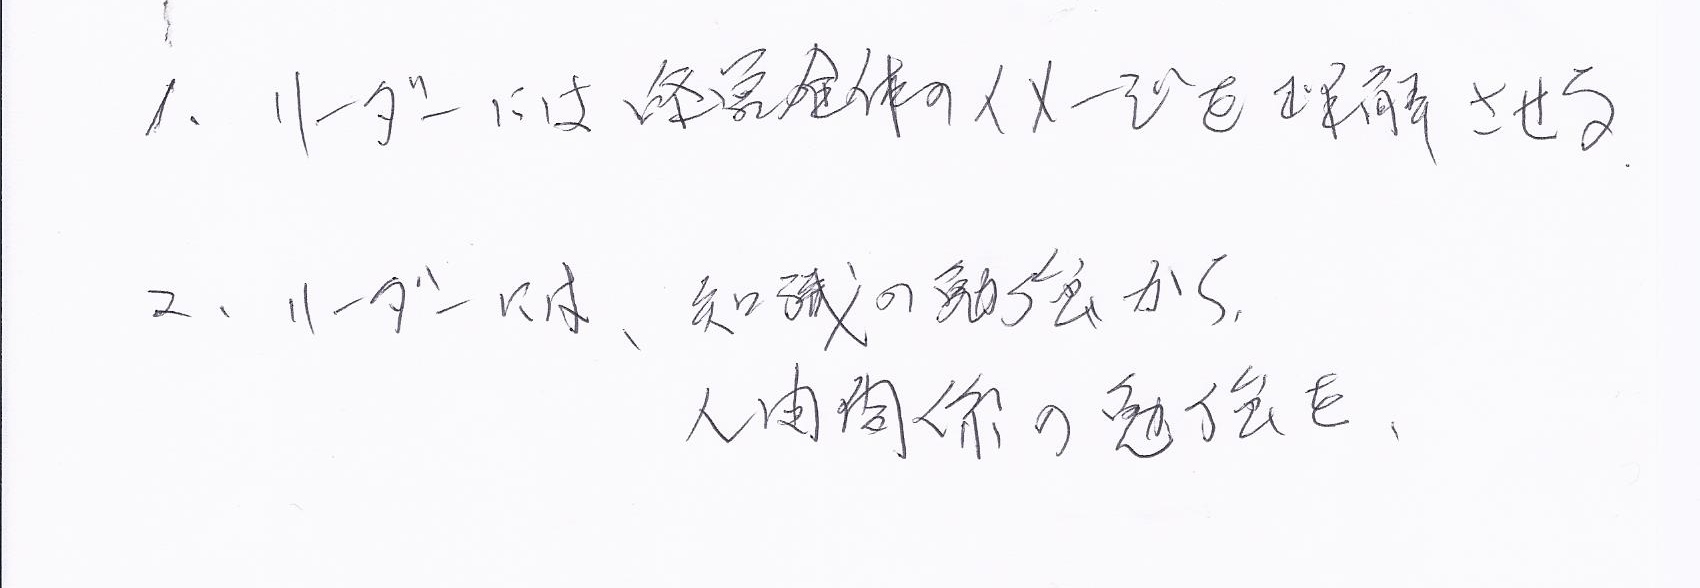 1. リーダーには経営全体のイメージを理解させる.
2、リーダーには、知識の勉強から、
人間関係の勉強を、